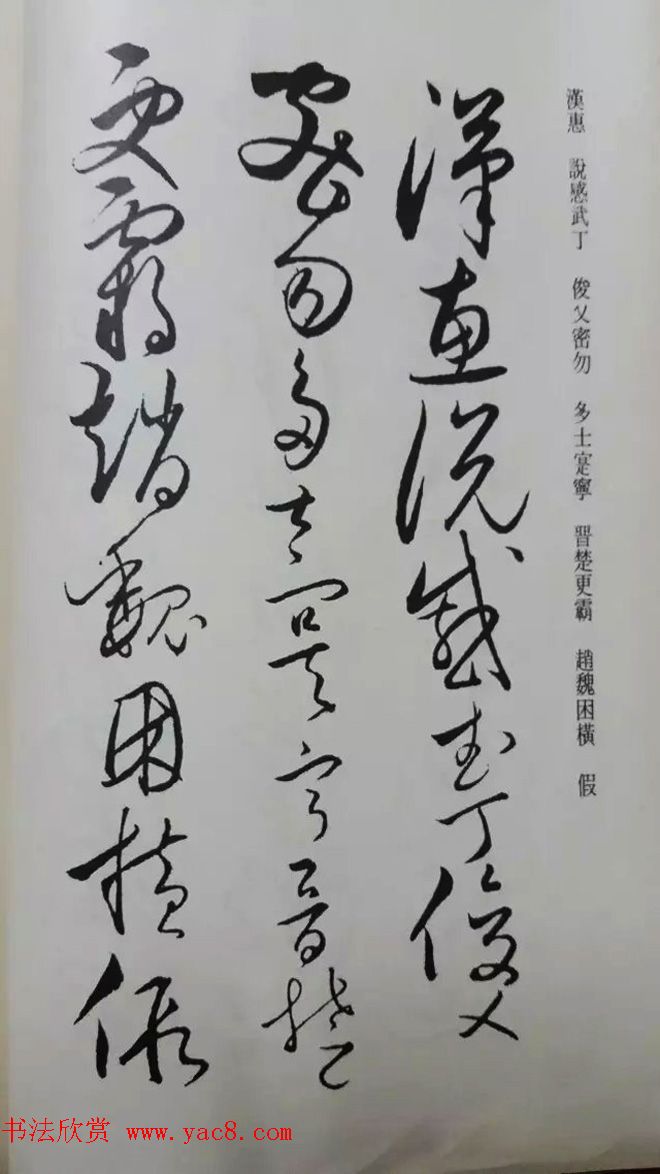 漢惠 說感武丁 俊乂密勿 多士寔寧 晋楚更霸 趙魏困橫 假
漢惠說感武丁俊乂
密勿多士寔寧晋楚
更霸趙魏困橫假
书法欣赏 www.yac8.com